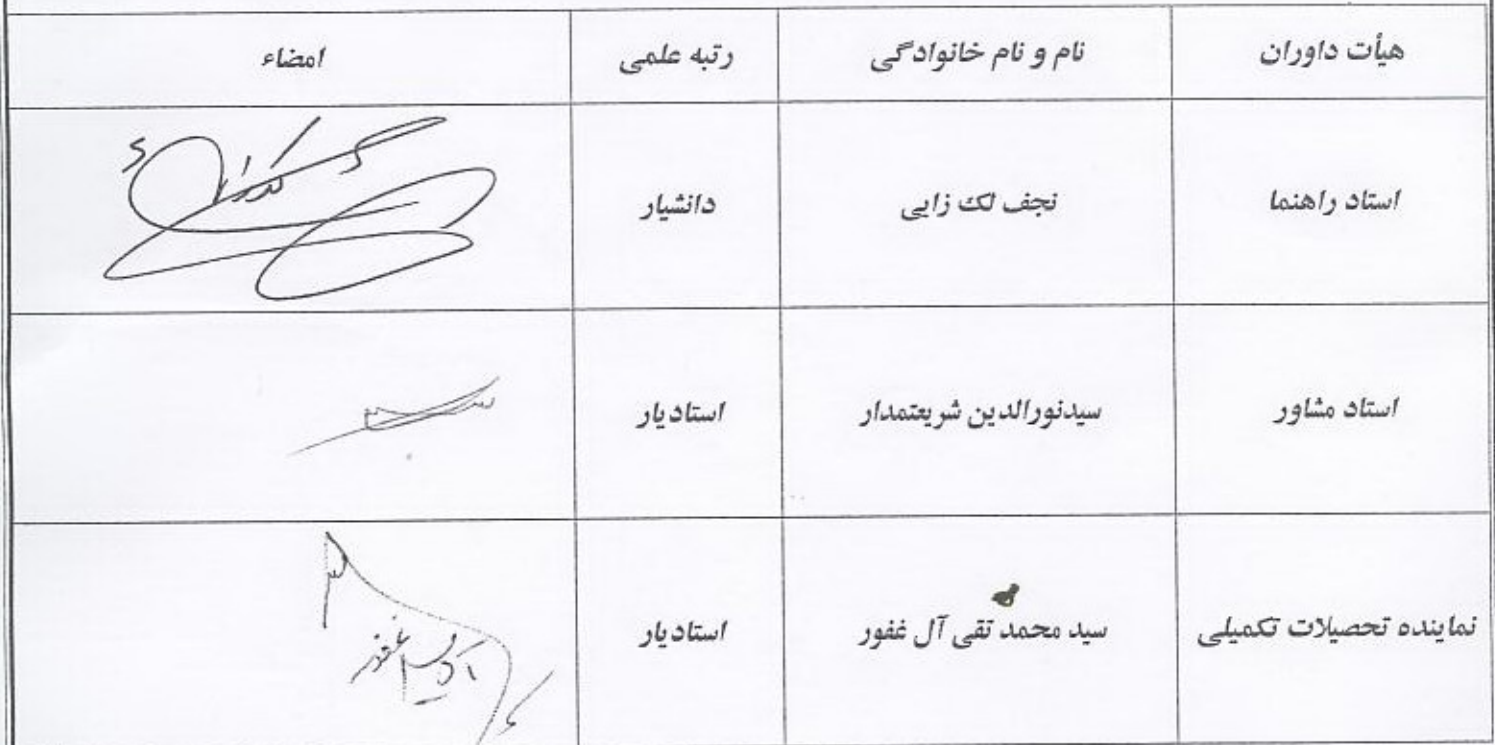 هیأت داوران نام و نام خانوادگی رتبه علمی امضاء
استاد راهنما نجف لک زایی دانشیار
استاد مشاور سیدنورالدین شریعتمدار استادیار
نماینده تحصیلات تکمیلی سید محمد تقی آل غفور استادیار